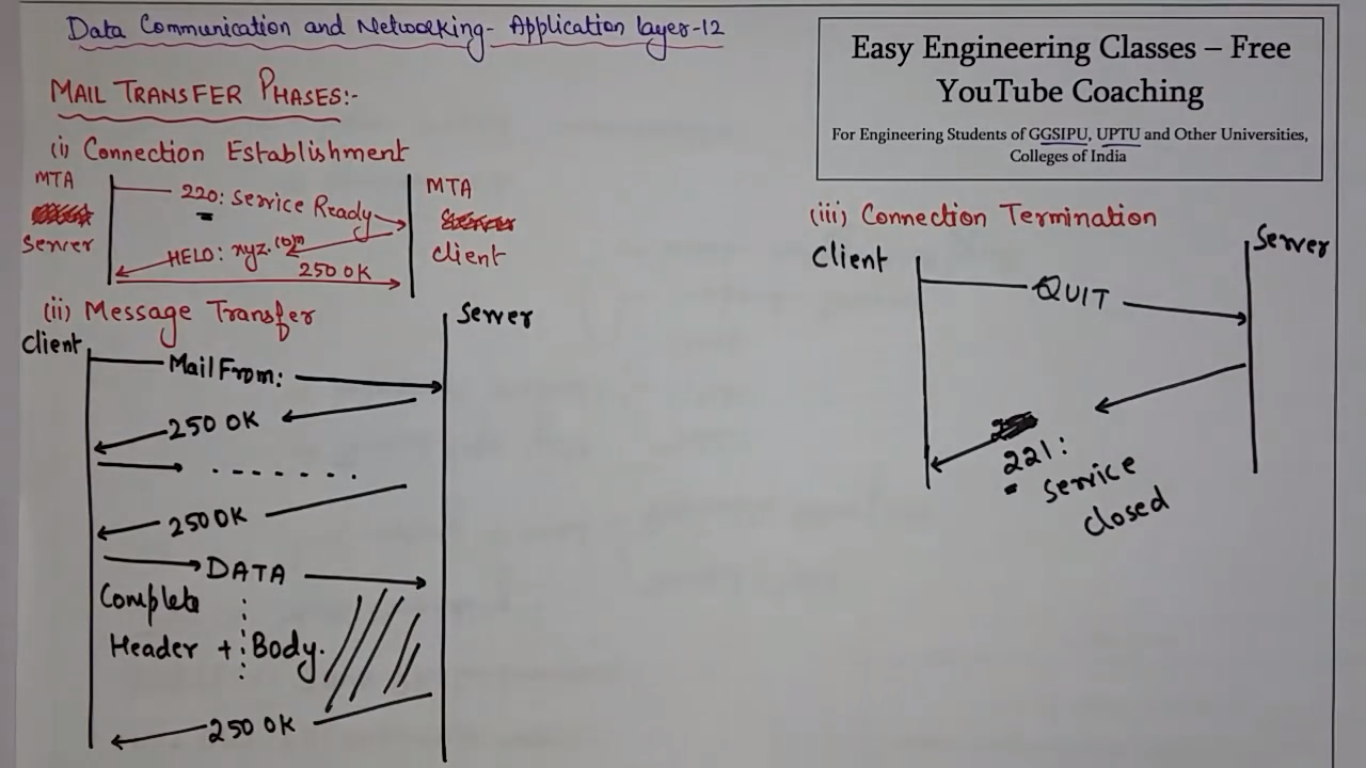 Data Communication and Networking- Application layer-12
Easy Engineering Classes – Free
YouTube Coaching
For Engineering Students of GGSIPU, UPTU and Other Universities,
Colleges of India
MAIL TRANSFER PHASES:-
(i) Connection Establishment
MTA
Server
220: Service Ready
HELO: xyz.com
250 OK
MTA
Client
(ii) Message Transfer
Client
Server
Mail From:
250 OK
250 OK
DATA
Complete
Header + Body.
250 OK
(iii) Connection Termination
Client
Server
QUIT
221:
Service
closed